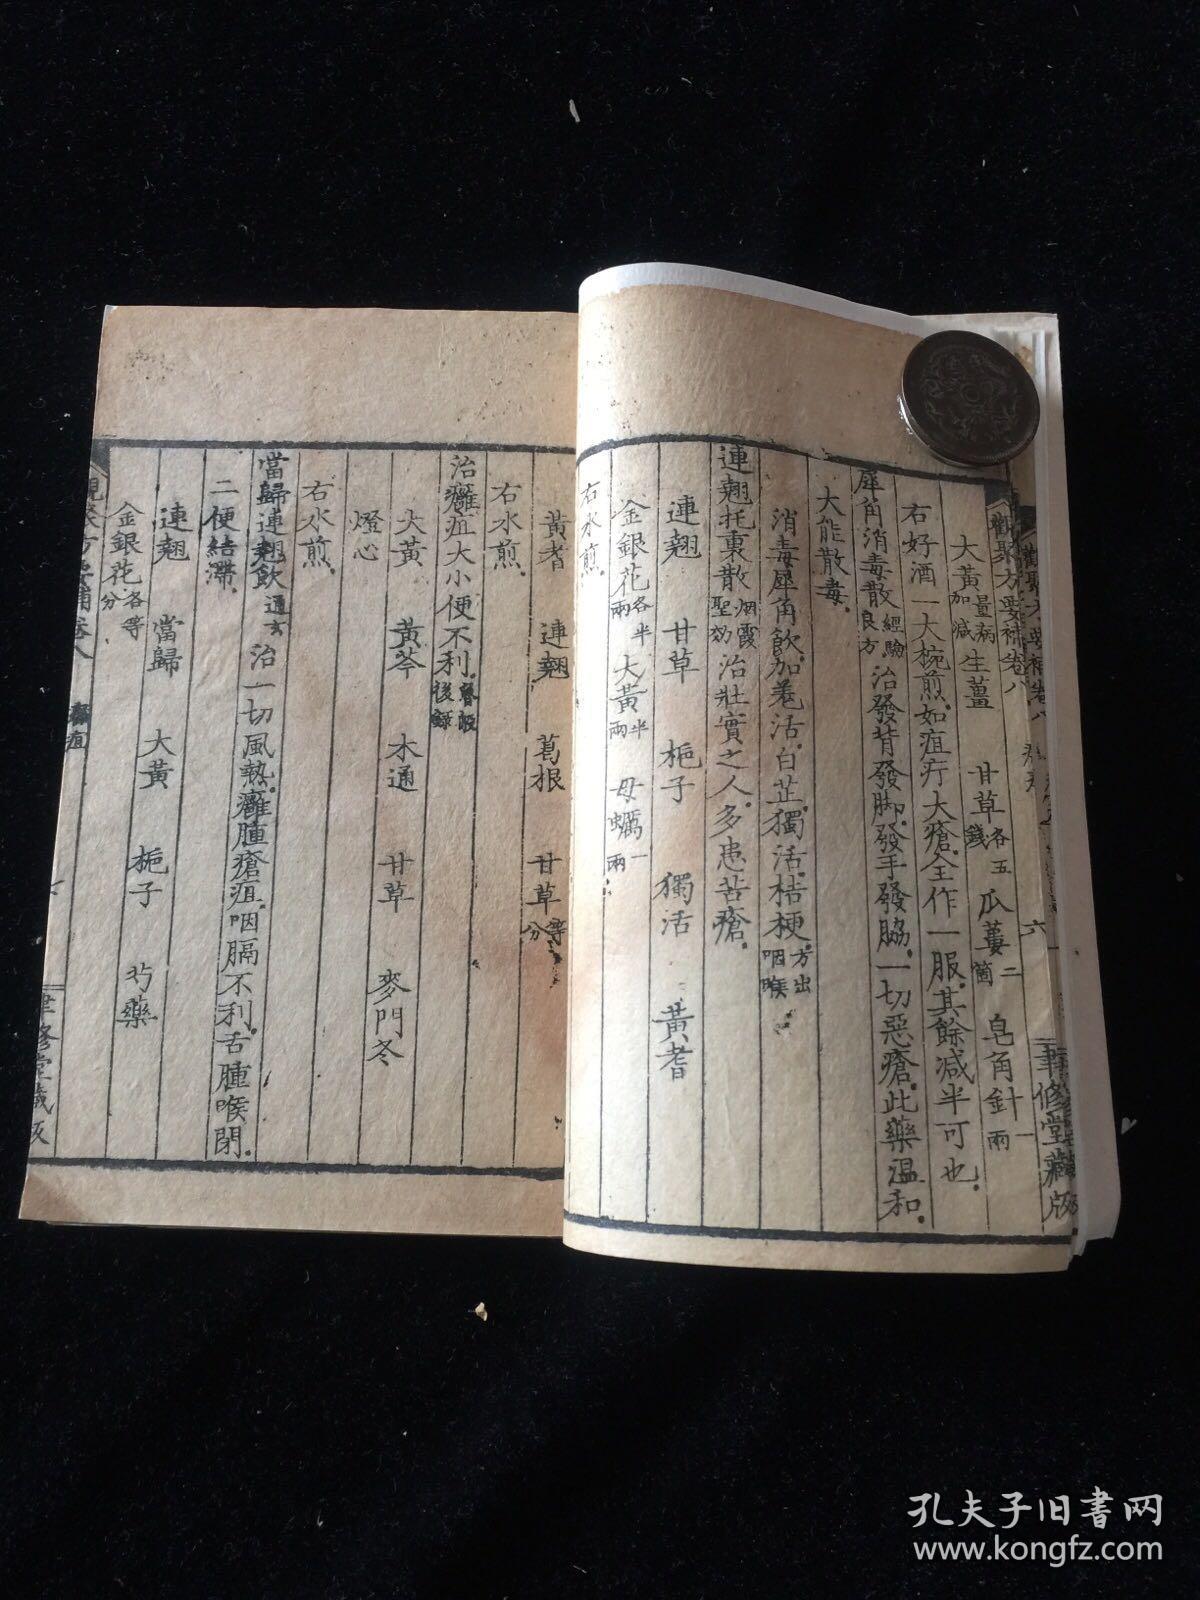 觀聚方要補卷八
六
聿修堂藏版
大黃量病加減 生薑 甘草各五錢 瓜蔞二箇 皂角針一兩
右好酒一大椀煎.如疽疔大瘡.全作一服.其餘減半可也.
犀角消毒散經驗良方 治發背發脚.發手發脇.一切惡瘡.此藥溫和.
大能散毒.
消毒犀角飲.加羌活.白芷.獨活.桔梗.方出咽喉
連翹托裏散烟霞聖効 治壯實之人.多患苦瘡.
連翹 甘草 梔子 獨活 黃耆
金銀花各半兩 大黃半兩 母蠣一兩
右水煎.
黃耆 連翹 葛根 甘草等分
右水煎.
治癰疽大小便不利.
大黃 黃芩 木通 甘草 麥門冬
燈心
右水煎.
當歸連翹飲通玄 治一切風熱.癰腫瘡疽.咽膈不利.舌腫喉閉.
二便結滯.
連翹 當歸 大黃 梔子 芍藥
金銀花各等分
癰疽
聿修堂藏版
孔夫子旧书网
www.kongfz.com